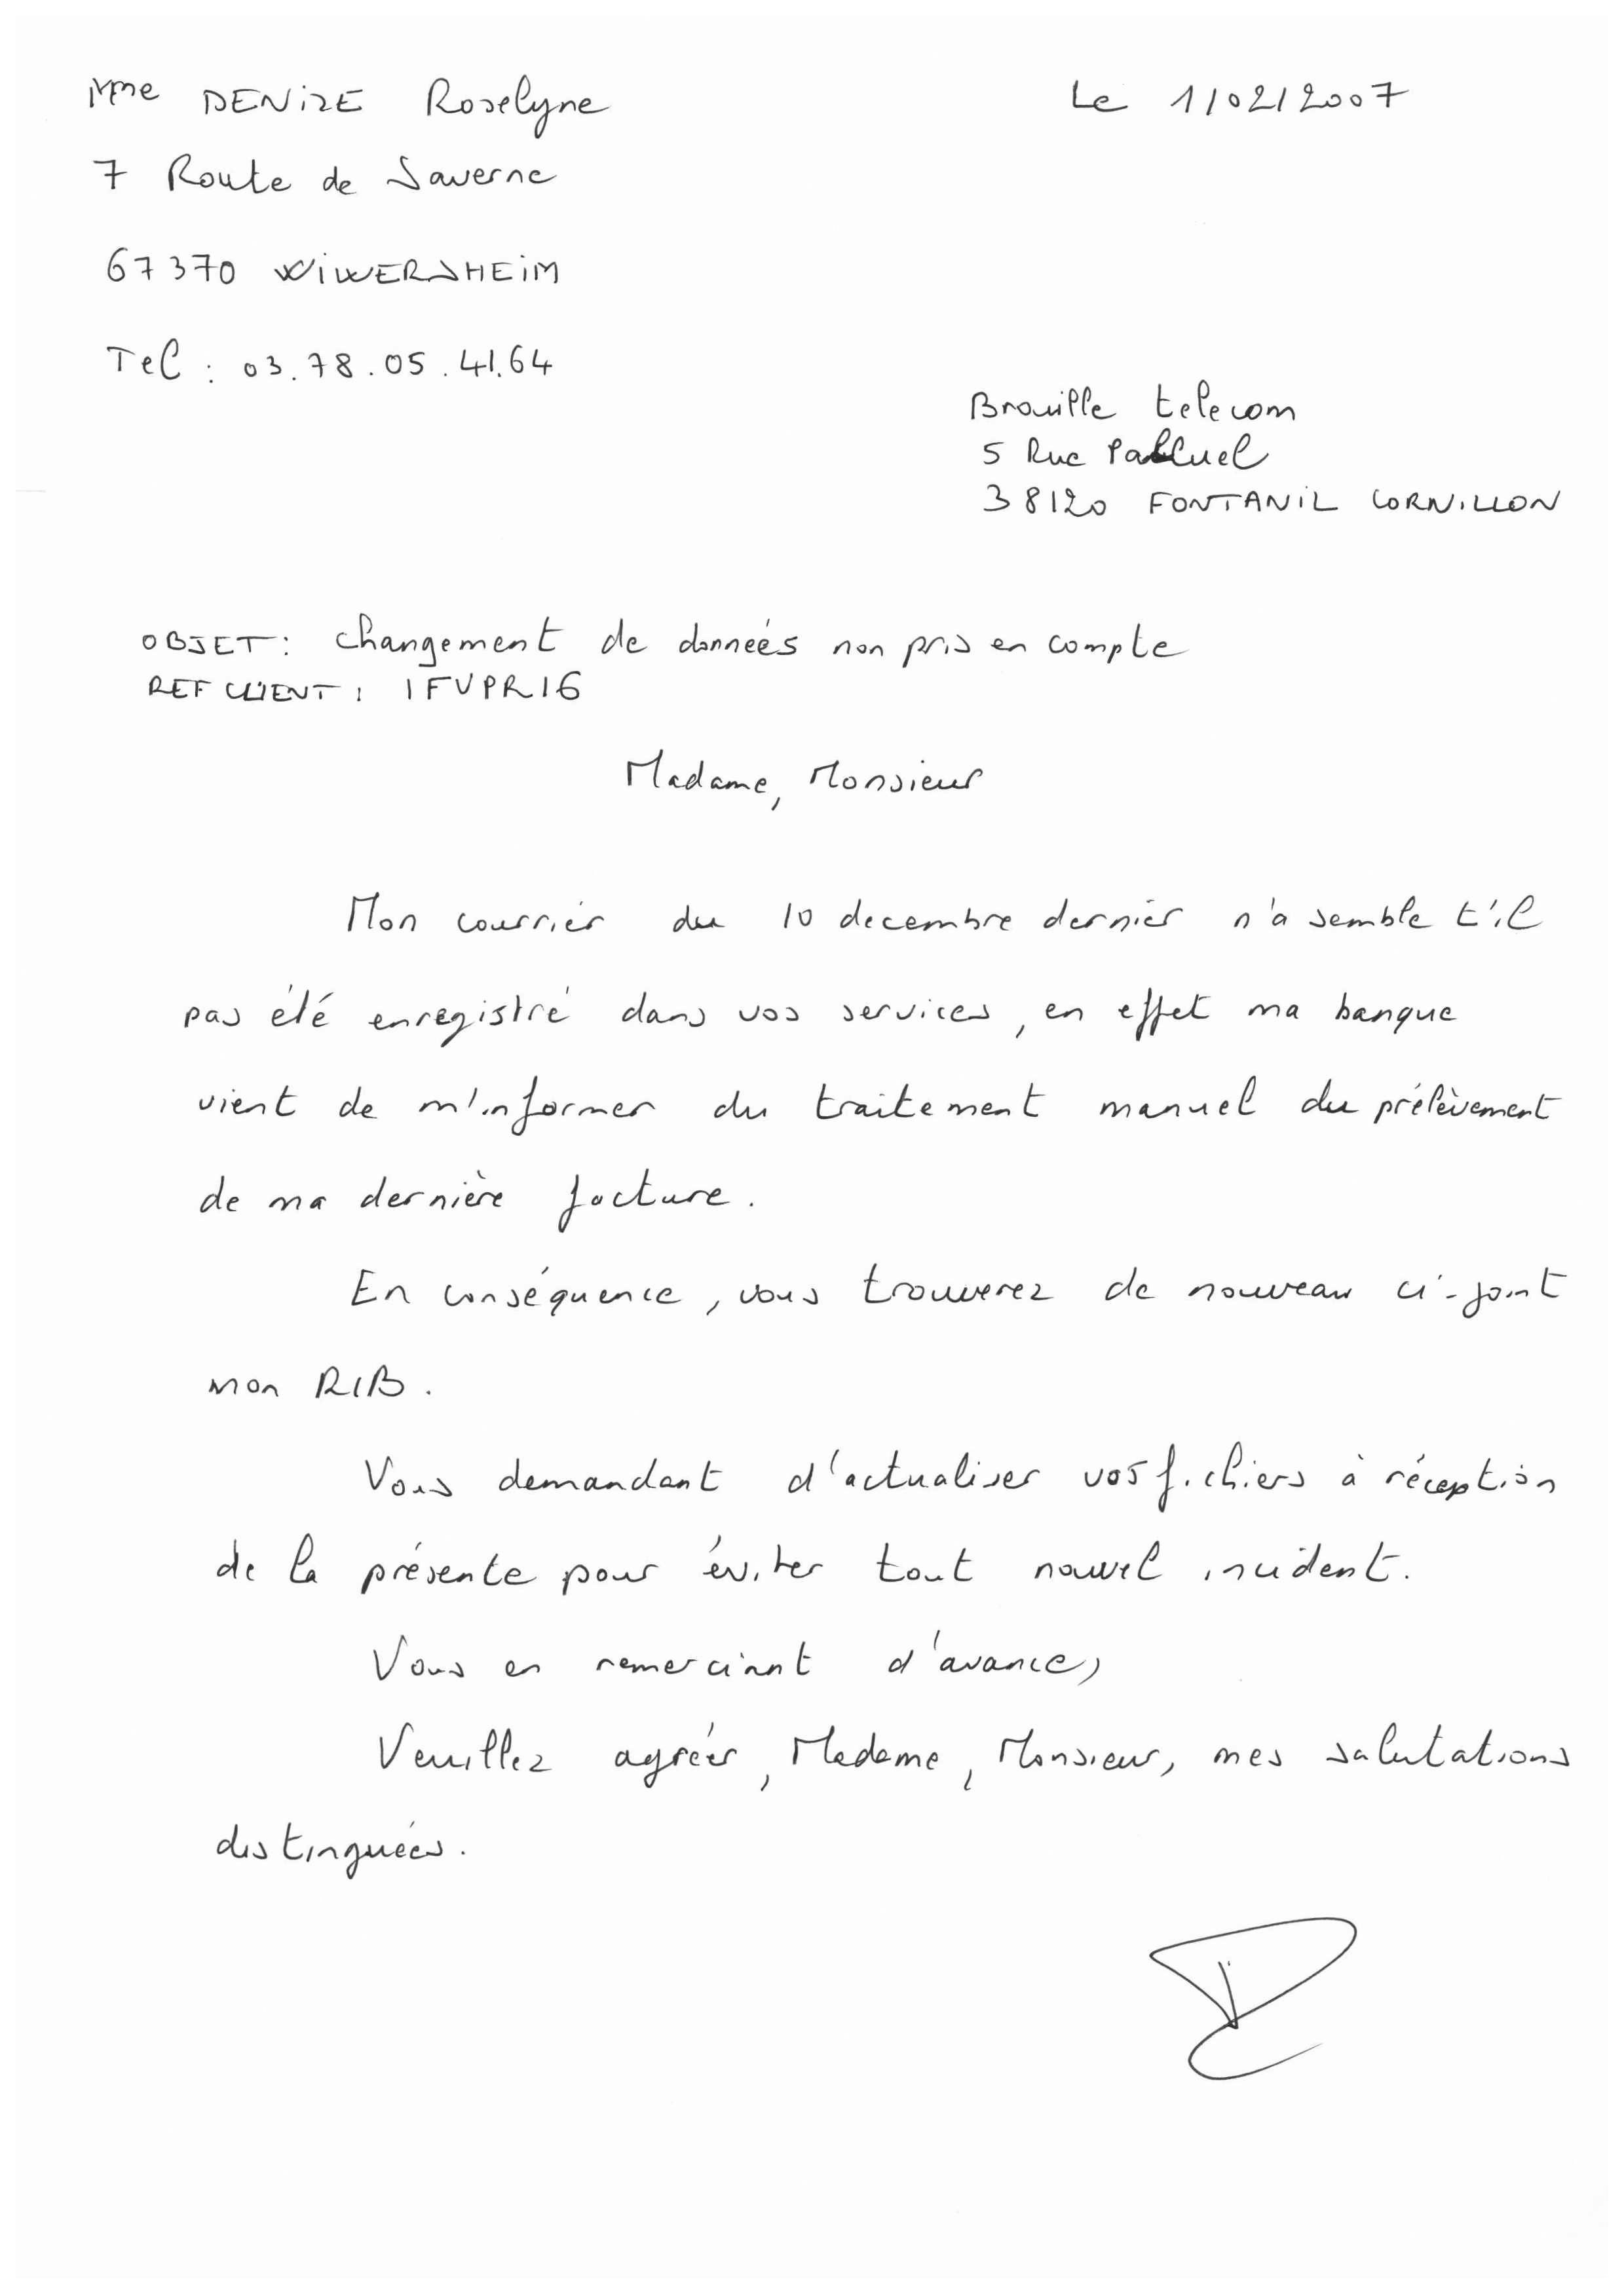 Mme DENIZE Roselyne
Le 1/02/2007
7 Route de Saverne
67370 WIWERSHEIM
Tel : 03.78.05.41.64
Brouille telecom
5 Rue Palluel
38120 FONTANIL CORNILLON
OBJET : changement de données non pris en compte
REF CLIENT : 1FVPR16
Madame, Monsieur
Mon courrier du 10 decembre dernier n'a semble t'il
pas été enregistré dans vos services, en effet ma banque
vient de m'informer du traitement manuel du prélèvement
de ma dernière facture.
En conséquence, vous trouverez de nouveau ci-joint
mon RIB.
Vous demandant d'actualiser vos fichiers à réception
de la présente pour éviter tout nouvel incident.
Vous en remerciant d'avance,
Veuillez agréer, Madame, Monsieur, mes salutations
distinguées.